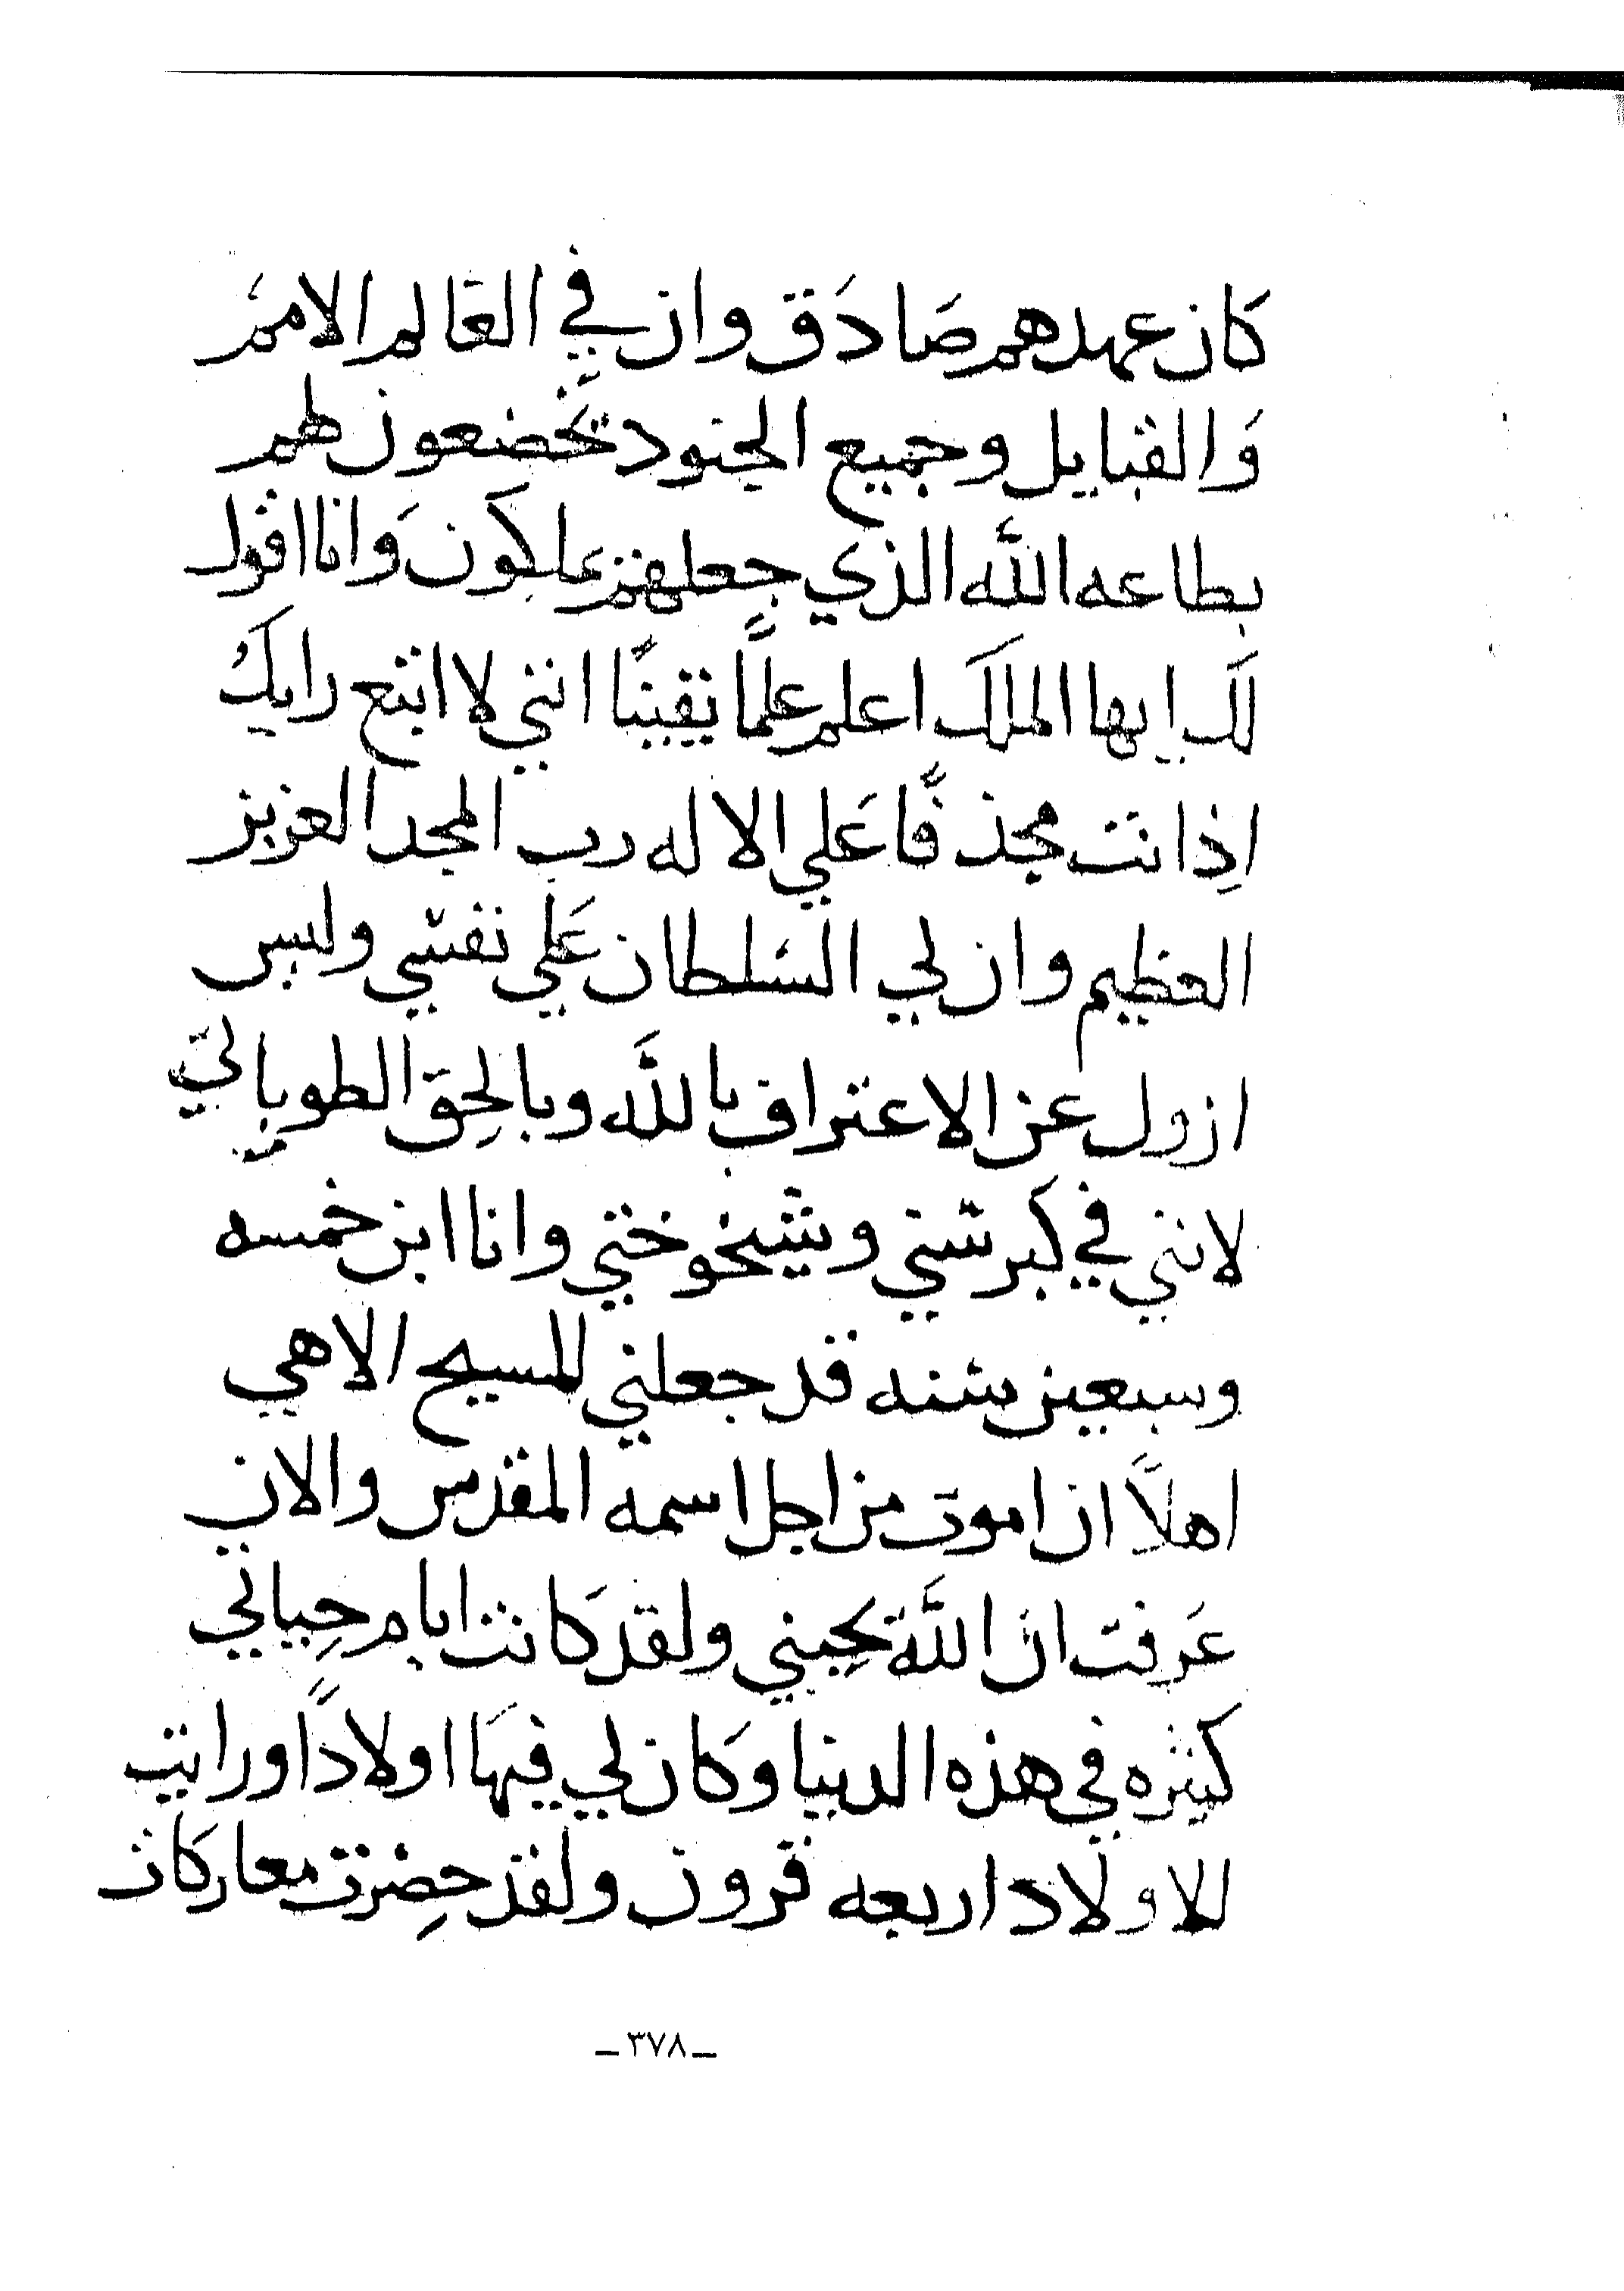 كان عهدهم صَادَق وان في العَالم الامم
وَالقبايل وجميع الجنود تخضعون لهم
بطاعه الله الذي جعلهم يملكون وَانا اقول
لك ايها الملك اعلم علمًا يقينًا انني لا اتبع رايك
اِذ انت مجذفًا عَلي الاله رب المجد العزيز
العظيم وان لي السلطان عَلي نفسي وليس
ازول عن الاعتراف بالله وبالحِق الطوبا لي
لانني في كبر سني وشيخوختي وانا ابن خمسه
وسبعين سنه قد جعلني المسيح الاهي
اهلاً ان اموت من اجل اسمه المقدس والان
عَرفت ان الله يحِبني ولقد كانت ايام حِياتي
كثيره في هذه الدنيا وَكان لي فيهَا اولادًا ورايت
للاولاد اربعه قرون ولقد حِضرت معاركات
ـ٣٧٨ـ